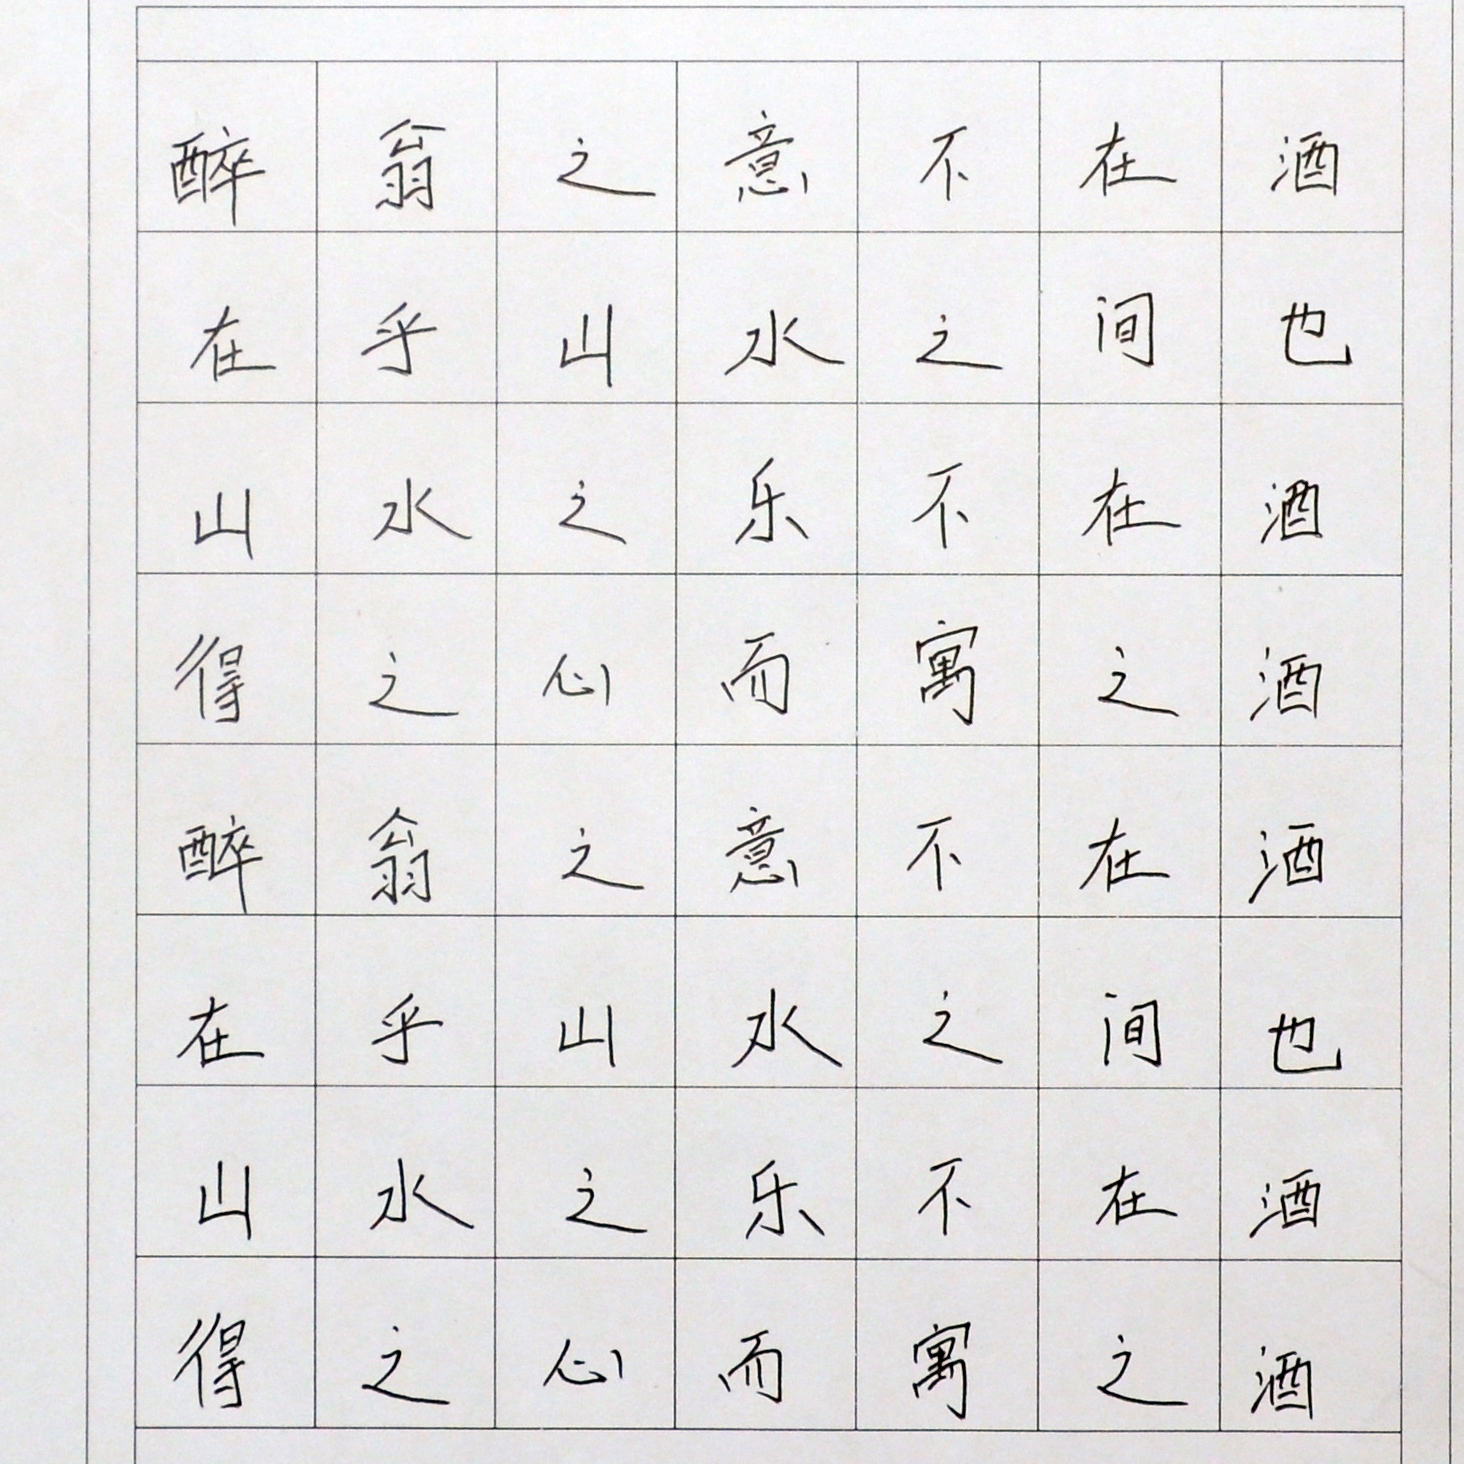 醉翁之意不在酒
在乎山水之间也
山水之乐不在酒
得之心而寓之酒
醉翁之意不在酒
在乎山水之间也
山水之乐不在酒
得之心而寓之酒